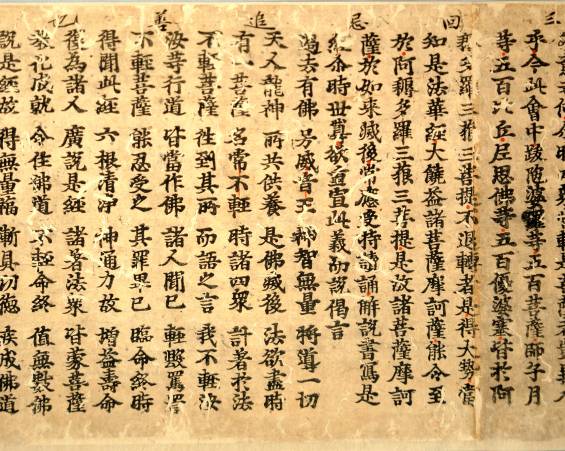 三回忌追善
乎今此會中跋陀婆羅等五百菩薩師子月
等五百比丘尼思佛等五百優婆塞皆於阿
耨多羅三藐三菩提不退轉者是得大勢當
知是法華經大饒益諸菩薩摩訶薩能令至
於阿耨多羅三藐三菩提是故諸菩薩摩訶
薩於如來滅後常應受持讀誦解說書寫是
經爾時世尊欲重宣此義而說偈言
過去有佛 号威音王 神智無量 將導一切
天人龍神 所共供養 是佛滅後 法欲盡時
有一菩薩 名常不輕 時諸四眾 計著於法
不輕菩薩 往到其所 而語之言 我不輕汝
汝等行道 皆當作佛 諸人聞已 輕毀罵詈
不輕菩薩 能忍受之 其罪畢已 臨命終時
得聞此經 六根清淨 神通力故 增益壽命
復為諸人 廣說是經 諸著法眾 皆蒙菩薩
教化成就 令住佛道 不輕命終 值無數佛
說是經故 得無量福 漸具功德 疾成佛道